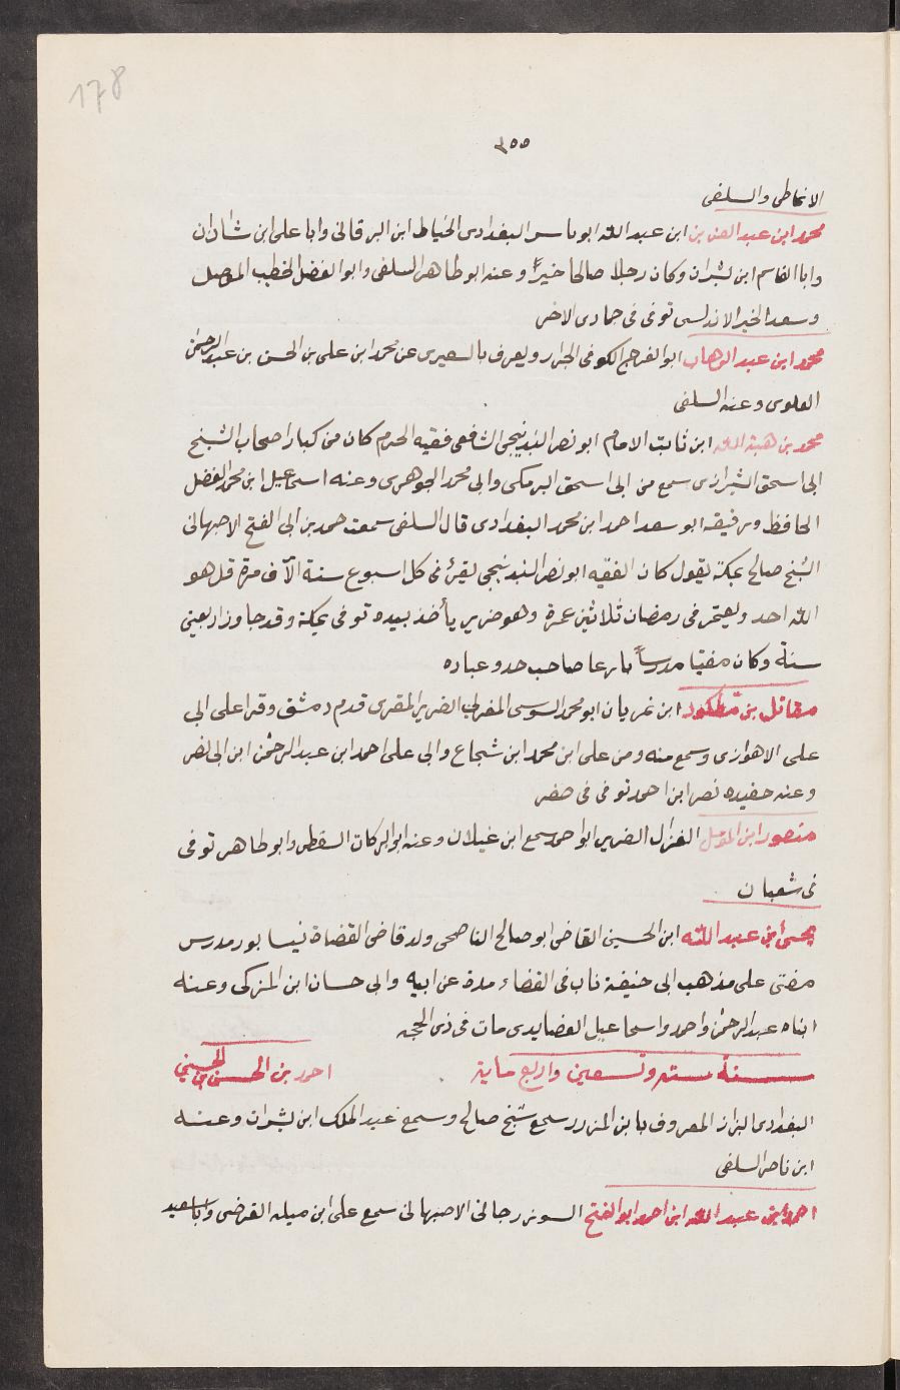 178
٣٥٥
الانماطى والسلفى
محمد ابن عبد العزيز بن ابن عبد الله ابو ياسر البغدادى الخياط ابن البرقانى وابا على ابن شاذان
وابا القاسم ابن بشران وكان رجلا صالحا خيراً وعنه ابو طاهر السلفى وابو الفضل الخطيب الموصل
وسعد الخير الاندلسى توفى فى جمادى الاخر
محمد ابن عبد الوهاب ابو الفرج الكوفى الجزار ويعرف بالسعيرى عن محمد ابن على بن الحسن بن عبد الرحمن
العلوى وعنه السلفى
محمد بن هبة الله ابن ثابت الامام ابو نصر البندنيجى الشافعى فقيه الحرم كان من كبار اصحاب الشيخ
ابى اسحق الشيرازى سمع من ابى اسحق البرمكى وابى محمد الجوهرى وعنه اسماعيل ابن محمد الفضل
الحافظ ورفيقه ابو سعد احمد ابن محمد البغدادى قال السلفى سمعت حمد بن ابى الفتح الاصبهانى
الشيخ صالح بمكة يقول كان الفقيه ابو نصر البندنيجى يقرئ فى كل اسبوع ستة الآف مرة قل هو
الله احد ويعتمر فى رمضان ثلاثين عمرة وهو ضرير يأخذ بيده توفى بمكة وقد جاوز اربعين
سنة وكان مفتيا مدرساً بارعا صاحب جد وعباده
مقاتل بن مطكود ابن غريان ابو محمد السوسى المغربى الضرير المقرى قدم دمشق وقرا على ابى
على الاهوازى وسمع منه ومن على ابن محمد ابن شجاع وابى على احمد ابن عبد الرحمن ابن ابى نصر
وعنه حفيده نصر ابن احمد توفى فى صفر
منصور ابن المومل الغزال الضرير ابو احمد سمع ابن غيلان وعنه ابو البركات السقطى وابو طاهر توفى
فى شعبان
يحيى ابن عبد الله ابن الحسين القاضى ابو صالح الناصحى ولد قاضى القضاة نيسابور مدرس
مفتى على مذهب ابى حنيفة ناب فى القضاء مدة عن ابيه وابى حسان ابن المزكى وعنه
ابناه عبد الرحمن واحمد واسماعيل العصايدى مات فى ذى الحجه
سنة ستة وتسعين واربع ماية احمد بن الحسن بن الحسين
البغدادى البزاز المعروف بابن المزرر سمع شيخ صالح وسمع عبد الملك ابن بشران وعنه
ابن ناصر السلفى
احمد ابن عبد الله ابن احمد ابو الفتح السوذرجانى الاصبهانى سمع على ابن ميله الفرضى وابا سعيد